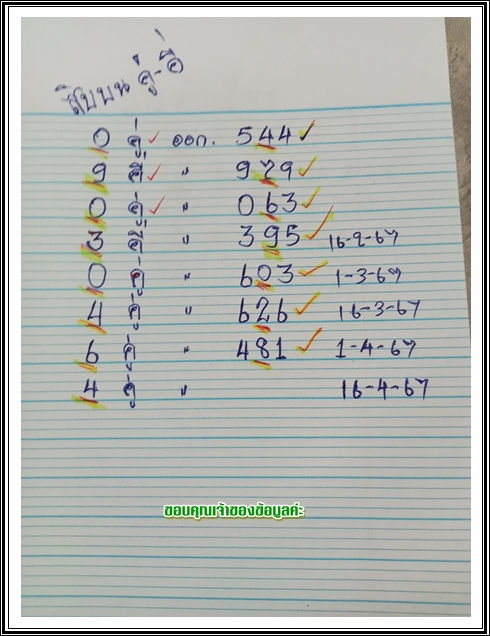 สิบบน คู่-คี่
0 คู่ ออก. 544
9 คี่ " 979
0 คู่ " 063
3 คี่ " 395 16-2-67
0 คู่ " 603 1-3-67
4 คู่ " 626 16-3-67
6 คู่ " 481 1-4-67
4 คู่ " 16-4-67
ขอบคุณเจ้าของข้อมูลค่ะ